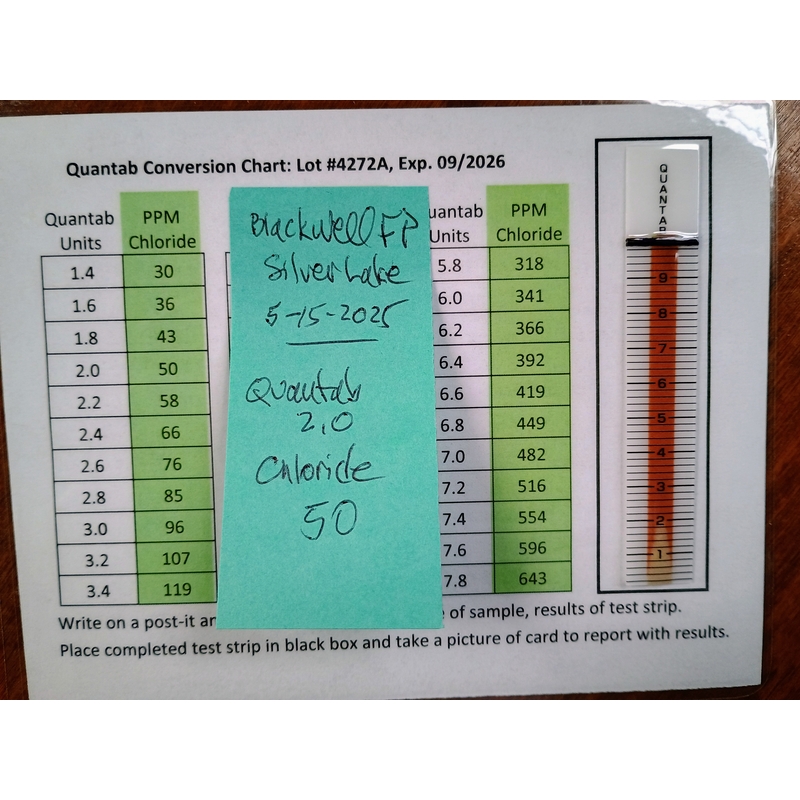 Quantab Conversion Chart: Lot #4272A, Exp. 09/2026
Quantab Units PPM Chloride
1.4 30
1.6 36
1.8 43
2.0 50
2.2 58
2.4 66
2.6 76
2.8 85
3.0 96
3.2 107
3.4 119
Blackwell FP
Silver Lake
5-15-2025
Quantab
2.0
Chloride
50
uantab Units PPM Chloride
5.8 318
6.0 341
6.2 366
6.4 392
6.6 419
6.8 449
7.0 482
7.2 516
7.4 554
7.6 596
7.8 643
QUANTAB
9
8
7
6
5
4
3
2
1
Write on a post-it an
of sample, results of test strip.
Place completed test strip in black box and take a picture of card to report with results.